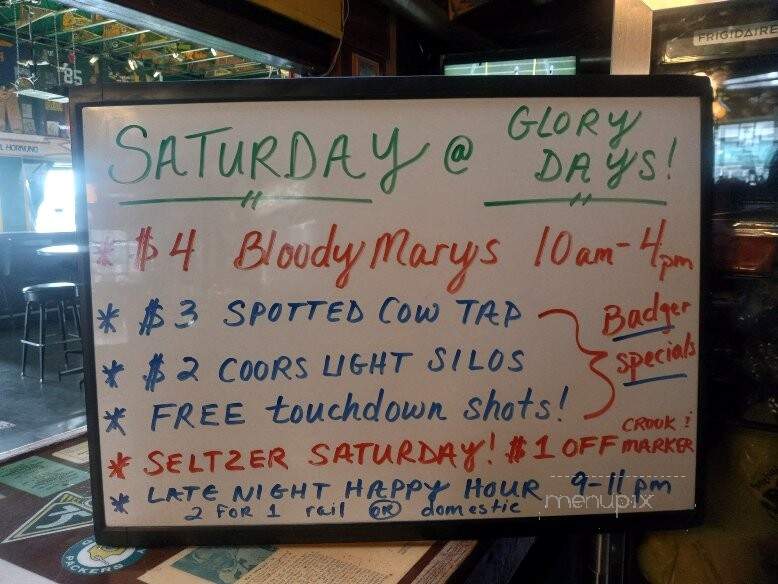 FRIGIDAIRE
85
L HORNUNG
SATURDAY @ GLORY DAYS!
* $4 Bloody Marys 10am-4pm
* $3 SPOTTED COW TAP
* $2 COORS LIGHT SILOS
* FREE touchdown shots!
Badger
specials
* SELTZER SATURDAY! $1 OFF CROOK & MARKER
* LATE NIGHT HAPPY HOUR 9-11pm
2 FOR 1 rail OR domestic
menupix
PACKERS